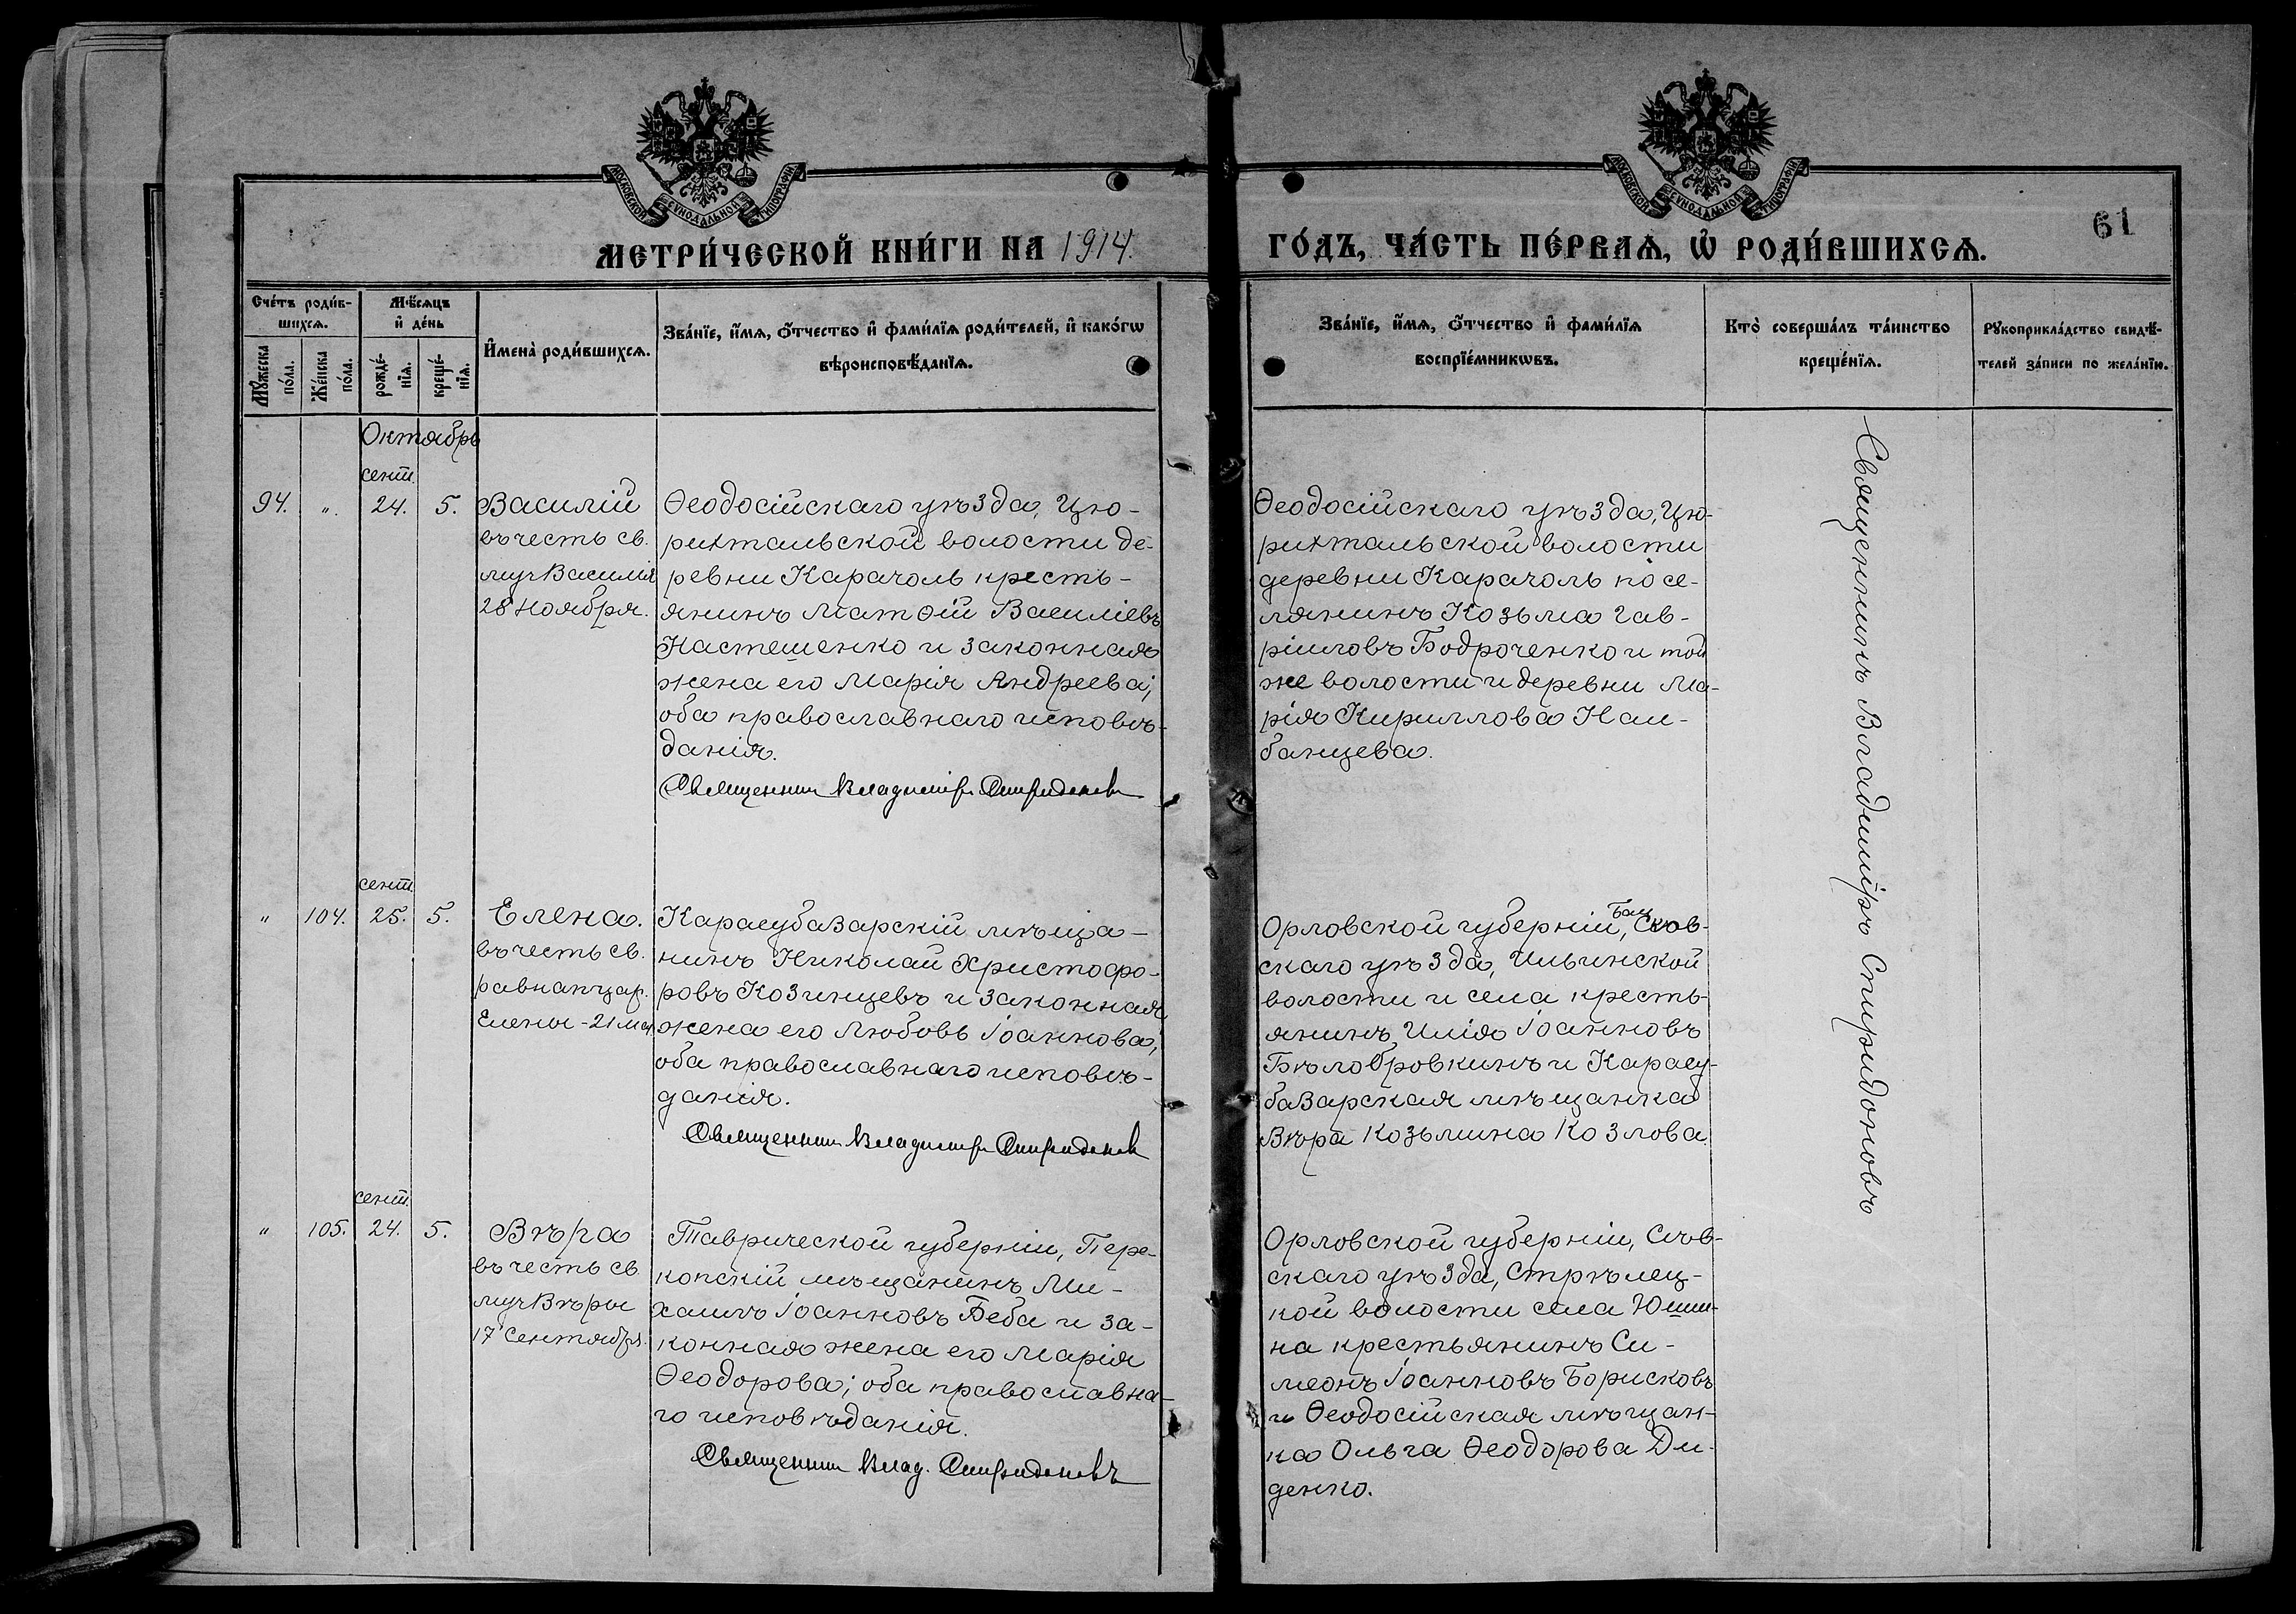 МОСКОВСКОЙ СѴНОДАЛЬНОЙ ТИПОГРАФІИ
МОСКОВСКОЙ СѴНОДАЛЬНОЙ ТИПОГРАФІИ
61
МЕТРИ́ЧЕСКОЙ КНИ́ГИ НА 1914.
ГО́ДЪ, ЧА́СТЬ ПЕ́РВАѦ, Ѽ РОДИ́ВШИХСѦ.
Сче́тъ роди́в-
шихсѧ.
Мꙋжеска
по́ла.
Же́нска
по́ла.
Мѣ́сѧцъ
и҆ де́нь
рожде́-
нїѧ.
креще́-
нїѧ.
И҆мена̀ роди́вшихсѧ.
Зва́нїе, и҆́мѧ, ѻ҆́тчество и҆ фами́лїѧ роди́телей, и҆ како́гѡ
вѣроисповѣ́данїѧ.
Зва́нїе, и҆́мѧ, ѻ҆́тчество и҆ фами́лїѧ
воспрїе́мникѡвъ.
Кто̀ соверша́лъ та́инство
креще́нїѧ.
Рꙋкоприкла́дство свидѣ́-
телей за́писи по жела́нїю.
Октябрь
сент.
94.
„
24.
5.
Василій
въ честь св.
муч Василія
28 Ноября.
Ѳеодосійскаго уѣзда, Цю-
рихтальской волости де-
ревни Карачоль кресть-
янинъ Матѳій Василіевъ
Кастешенко и законная
жена его Марія Андреева;
оба православнаго исповѣ-
данія.
Священникъ Владиміръ Спиридоновъ
Ѳеодосійскаго уѣзда, Цю-
рихтальской волости
деревни Карачоль посе-
лянинъ Козьма Гав-
ріиловъ Бодроченко и той
же волости и деревни Ма-
рія Кириллова Наи-
банцева.
Священникъ Владиміръ Спиридоновъ
сент.
„
104.
25.
5.
Елена.
въ честь св.
равнапцар.
Елены - 21 мая
Карасубазарскій мѣща-
нинъ Николай Христофо-
ровъ Козинцевъ и законная
жена его Любовь Іоаннова;
оба православнаго исповѣ-
данія.
Священникъ Владиміръ Спиридоновъ
Орловской губерніи,
скаго уѣзда, Ильинской
волости и села кресть-
янинъ Илія Іоанновъ
Бѣлобровкинъ и Карасу-
базарская мѣщанка
Вѣра Козьмина Козлова.
сент.
„
105.
24.
5.
Вѣра
въ честь св
муч Вѣры
17 Сентября.
Таврической губерніи, Пере-
копскій мѣщанинъ Ми-
хаилъ Іоанновъ Беба и за-
конная жена его Марія
Ѳеодорова; оба православна-
го исповѣданія.
Священникъ Влад. Спиридоновъ
Орловской губерніи, Сѣв-
скаго уѣзда, Стрѣлец-
кой волости села Юши-
на крестьянинъ Си-
меонъ Іоанновъ Борисковъ
и Ѳеодосійская мѣщан-
ка Ольга Ѳеодорова Ди-
денко.